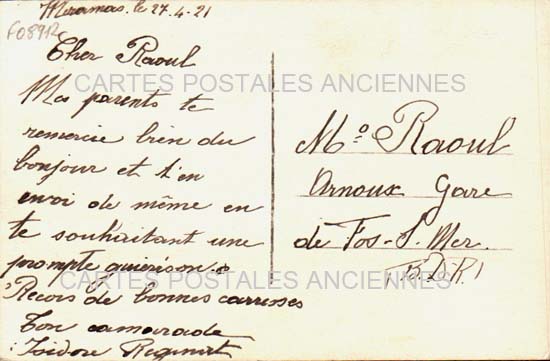 Miramas, le 27-4-21
F0891
Cher Raoul
CARTES POSTALES ANCIENNES
Mes parents te
remercie bien du
bonjour et t'en
envoi de même en
te souhaitant une
prompte guierison.
Recois de bonnes carresses
Ton camarade
Isidore
Mo. Raoul
Arnoux Gare
de Fos-S-Mer.
(B.D.R)